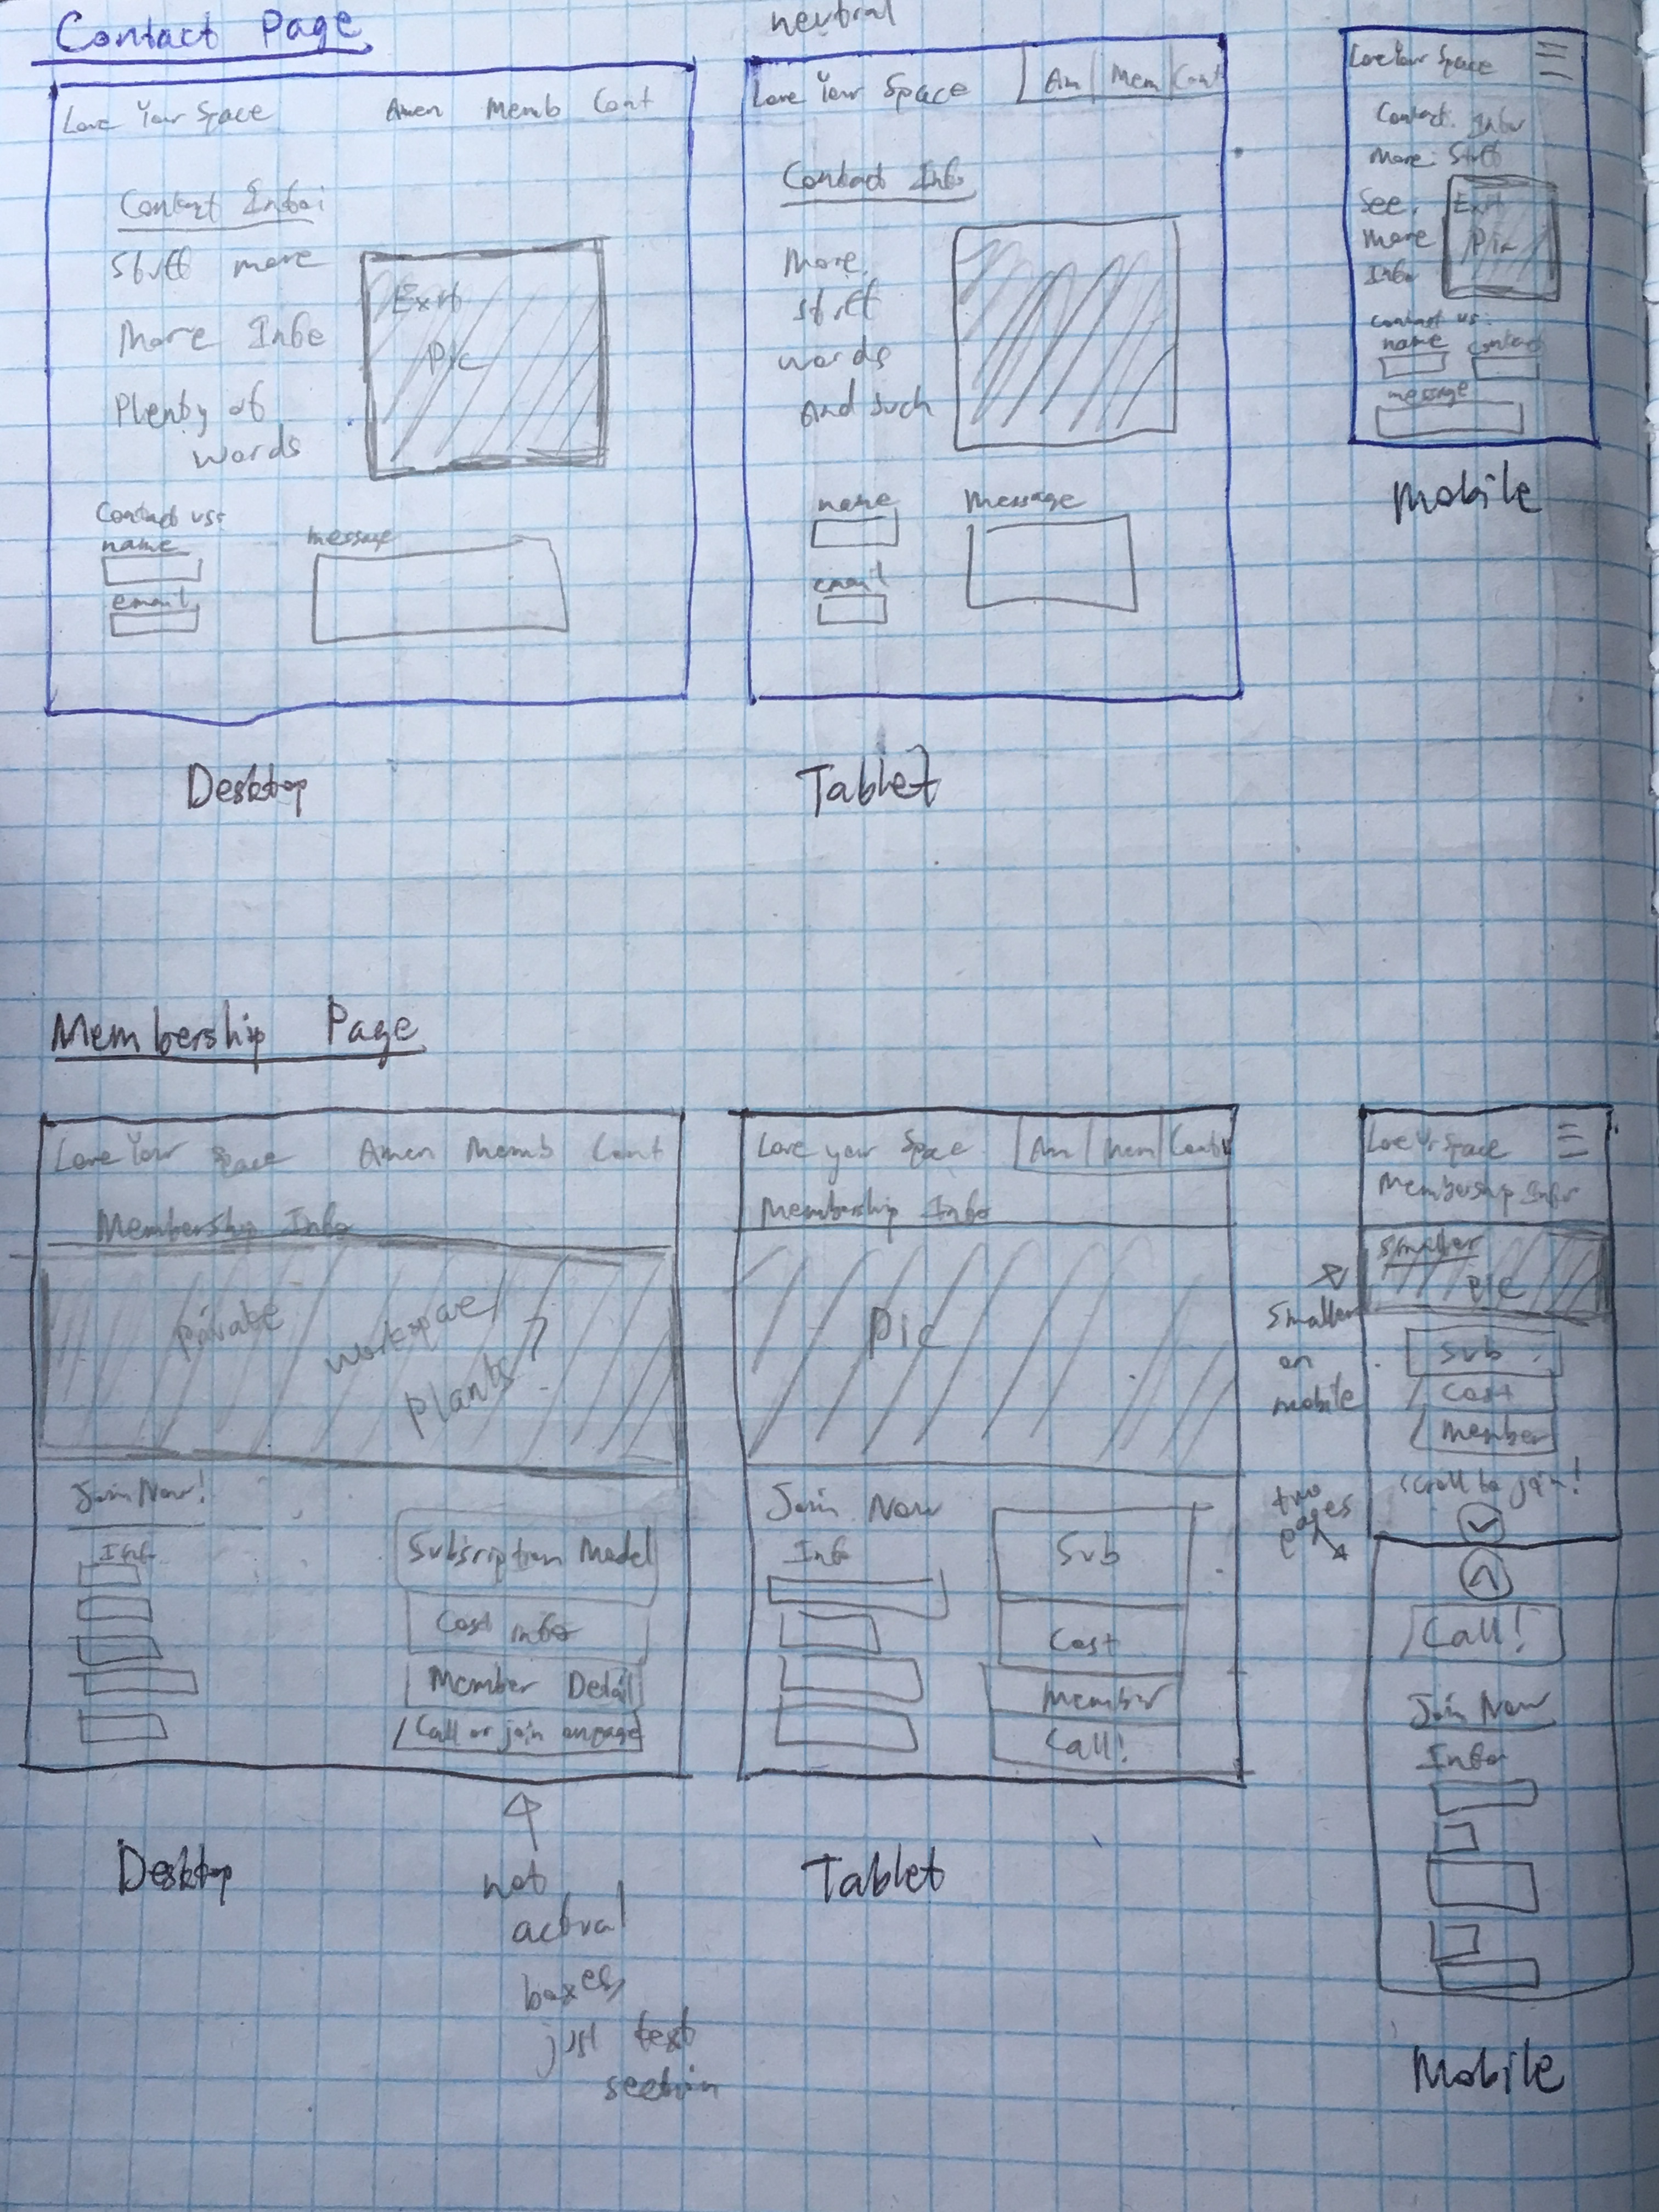 neutral
Contact Page
Love Your Space Amen Memb Cont
Contact Info:
Stuff more
More Info
Plenty of
words
Ext
Pic
Contact us:
name
email
message
Desktop
Love Your Space Am Mem Cont
Contact Info
More
stuff
words
and such
name
email
Message
Tablet
Love Your Space
Contact Info
More Stuff
See
more
Info
Ext
Pic
Contact us:
name contact
message
Mobile
Membership Page
Love Your Space Amen Memb Cont
Membership Info
Private
workspace/
plants?
Join Now!
Info
Subscription Model
Cost info
Member Detail
Call or join on page
Desktop
not
actual
boxes,
just text
section
Love your Space Am Mem Cont
Membership Info
Pic
Join Now
Info
Sub
Cost
Member
Call!
Tablet
smaller
on
mobile
two
pages
Love Yr Space
Membership Info
smaller
pic
Sub
Cost
Member
scroll to join!
Call!
Join Now
Info
Mobile